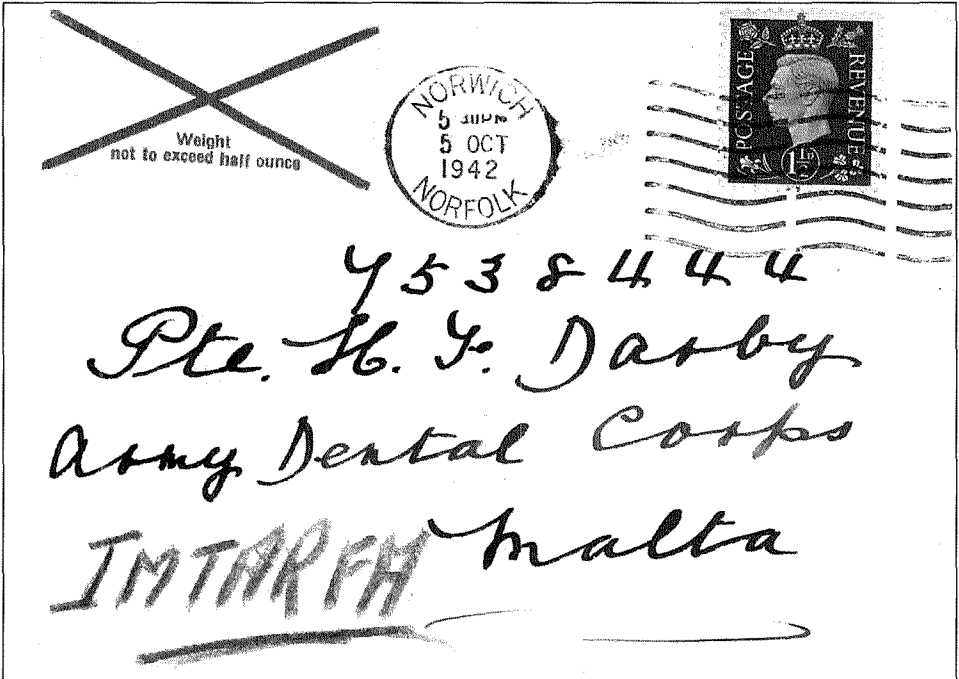 Weight
not to exceed half ounce
NORWICH
5 OCT
1942
NORFOLK
POSTAGE
REVENUE
1½D
7538444
Pte. H. F. Darby
Army Dental Corps
Malta
IMTARFA